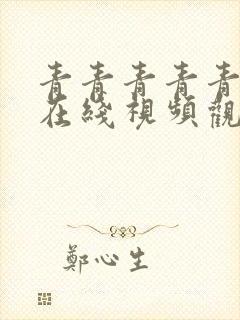 青青青青青
在綫視頻觀
鄭心生